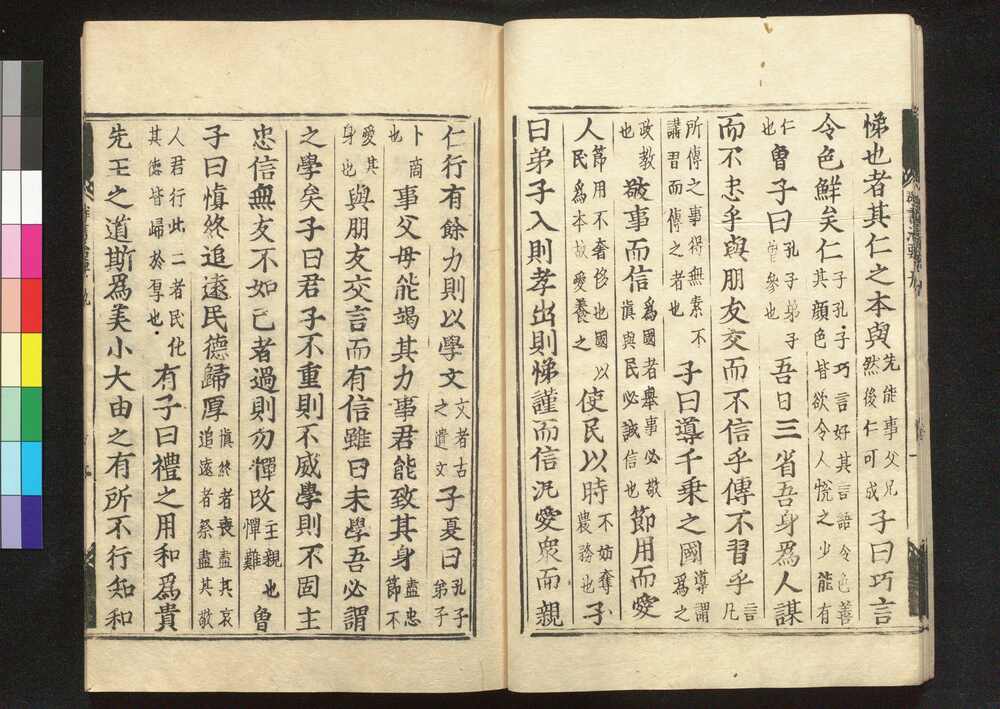 悌也者其仁之本與先能事父兄然後仁可成子曰巧言
令色鮮矣仁子孔子巧言好其言語令色善其顏色皆欲令人悅之少能有
仁也曾子曰孔子弟子曾參也吾日三省吾身爲人謀
而不忠乎與朋友交而不信乎傳不習乎言凡
所傳之事得無素不講習而傳之者也子曰導千乘之國導謂爲之
政教也敬事而信爲國者舉事必敬慎與民必誠信也節用而愛
人節用不奢侈也國以民爲本故愛養之使民以時不妨奪農務也子
曰弟子入則孝出則悌謹而信汎愛衆而親
仁行有餘力則以學文文者古之遺文子夏曰孔子弟子
卜商也事父母能竭其力事君能致其身盡忠節不
愛其身也與朋友交言而有信雖曰未學吾必謂
之學矣子曰君子不重則不威學則不固主
忠信無友不如己者過則勿憚改主親憚難也曾
子曰慎終追遠民德歸厚慎終者喪盡其哀追遠者祭盡其敬
人君行此二者民化其德皆歸於厚也有子曰禮之用和爲貴
先王之道斯爲美小大由之有所不行知和